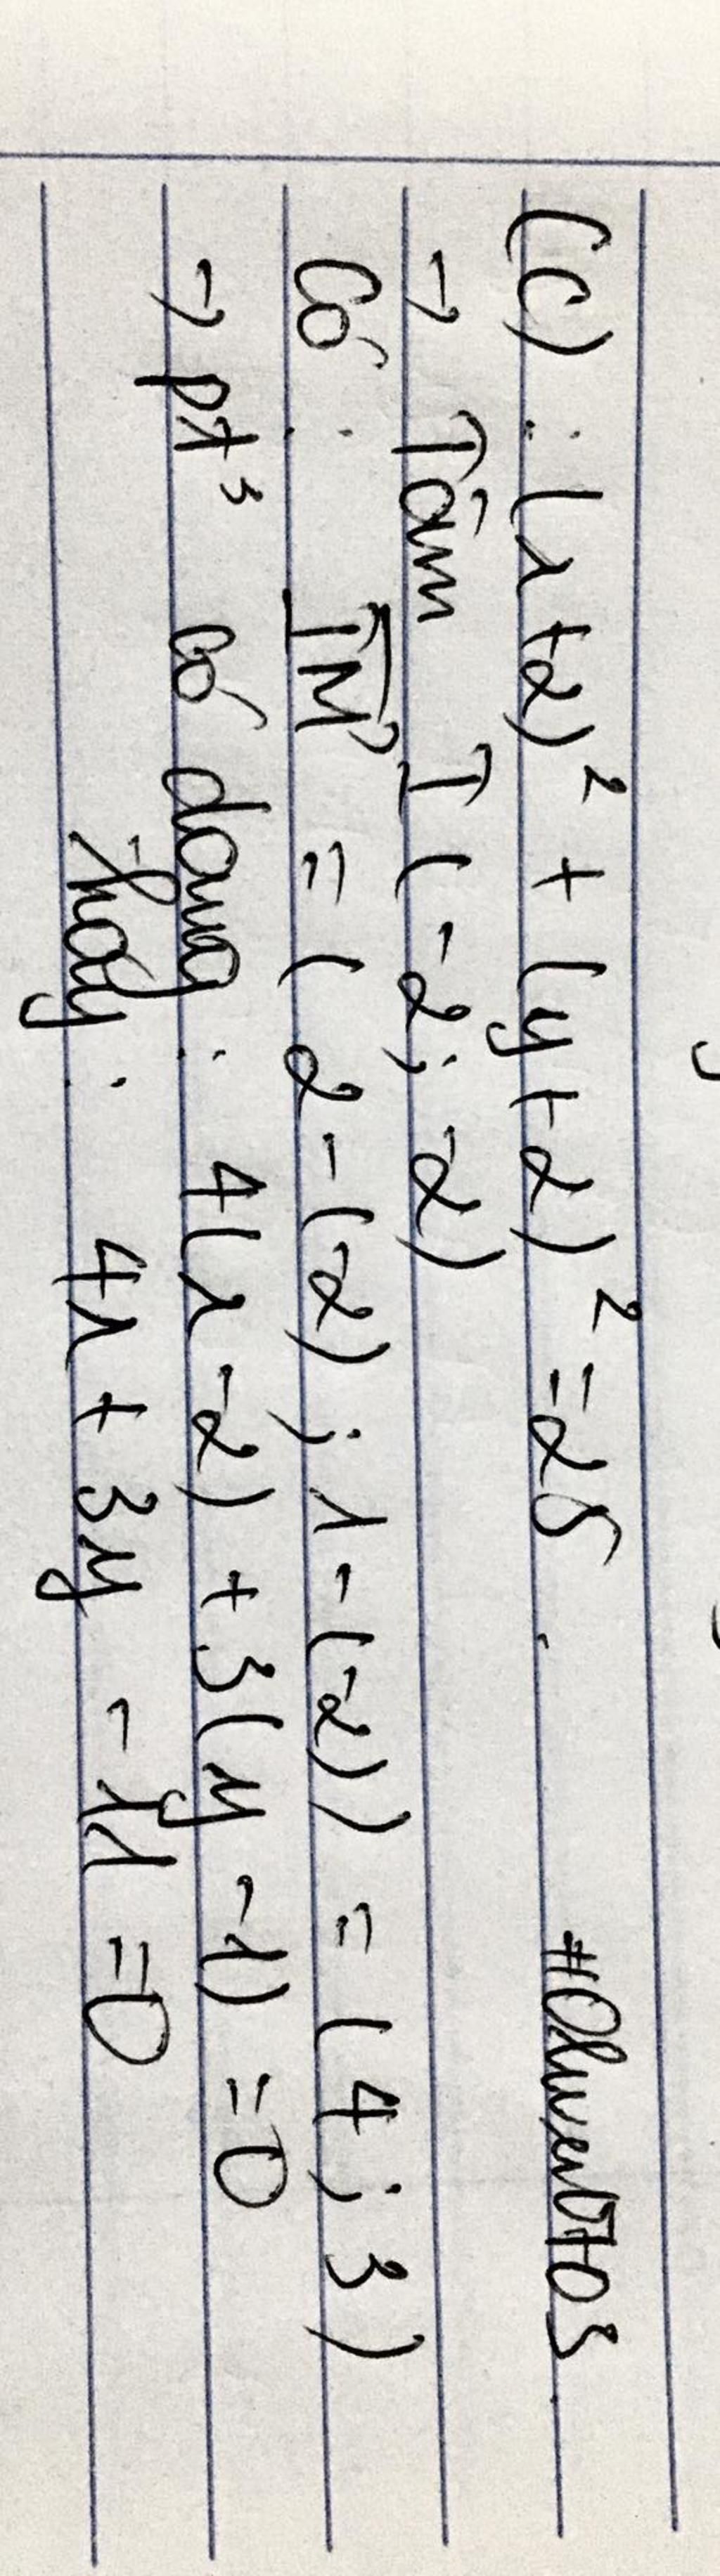 (C) : (x+2)² + (y+2)² = 25.
→ Tâm I (-2; -2)
Có : IM⃗ = (2-(-2); 1-(-2)) = (4; 3)
→ pt³ có dạng : 4(x-2) + 3(y-1) = 0
hay : 4x + 3y - 11 = 0